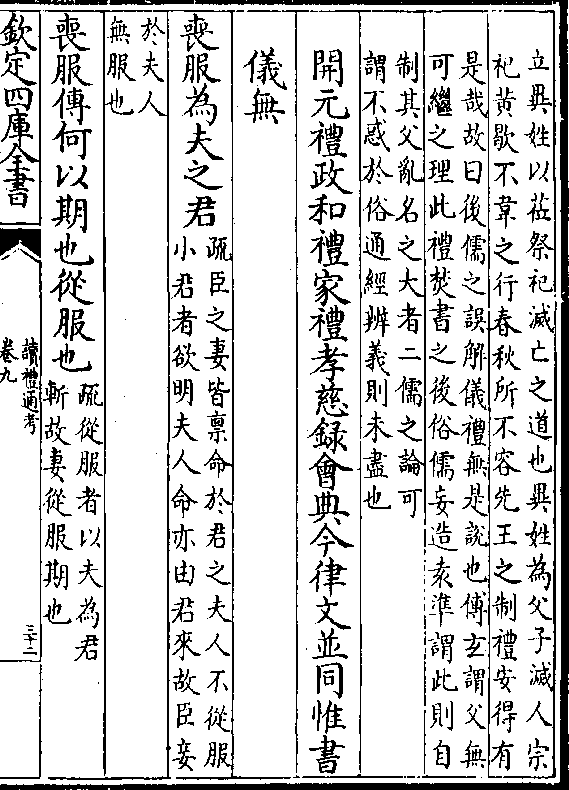 立異姓以莅祭祀滅亡之道也異姓為父子滅人宗
祀黄歇不韋之行春秋所不容先王之制禮安得有
是哉故曰後儒之誤解儀禮無是說也傅玄謂父無
可繼之理此禮焚書之後俗儒妄造袁準謂此則自
制其父亂名之大者二儒之論可
謂不惑於俗通經辨義則未盡也
開元禮政和禮家禮孝慈録會典今律文並同惟書
儀無
喪服為夫之君
疏臣之妻皆禀命於君之夫人不從服
小君者欲明夫人命亦由君來故臣妾
於夫人
無服也
喪服傳何以期也從服也
疏從服者以夫為君
斬故妻從服期也
欽定四庫全書
讀禮通考
卷九
三十二